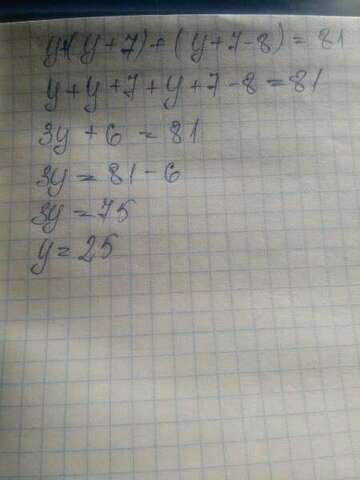 y+(y+7)+(y+7-8)=81
y+y+7+y+7-8=81
3y+6=81
3y=81-6
3y=75
y=25